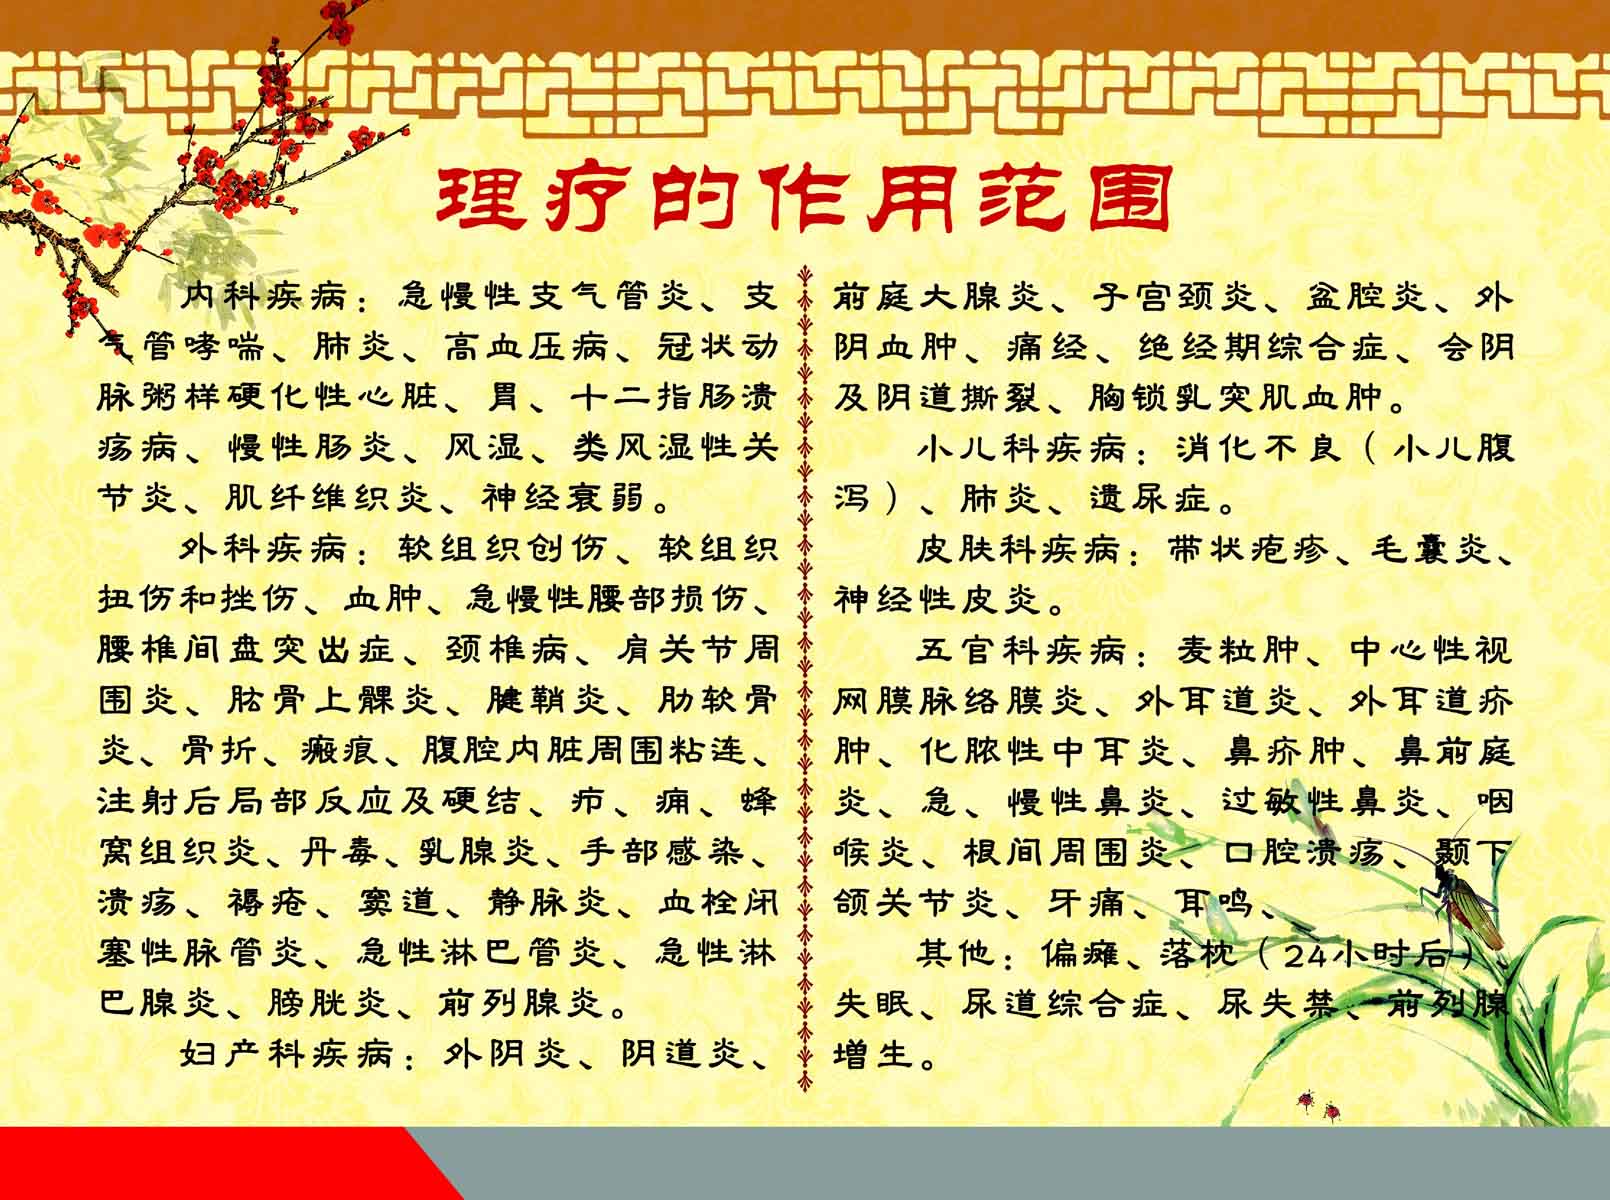 理疗的作用范围
内科疾病：急慢性支气管炎、支
气管哮喘、肺炎、高血压病、冠状动
脉粥样硬化性心脏、胃、十二指肠溃
疡病、慢性肠炎、风湿、类风湿性关
节炎、肌纤维织炎、神经衰弱。
外科疾病：软组织创伤、软组织
扭伤和挫伤、血肿、急慢性腰部损伤、
腰椎间盘突出症、颈椎病、肩关节周
围炎、肱骨上髁炎、腱鞘炎、肋软骨
炎、骨折、瘢痕、腹腔内脏周围粘连、
注射后局部反应及硬结、疖、痈、蜂
窝组织炎、丹毒、乳腺炎、手部感染、
溃疡、褥疮、窦道、静脉炎、血栓闭
塞性脉管炎、急性淋巴管炎、急性淋
巴腺炎、膀胱炎、前列腺炎。
妇产科疾病：外阴炎、阴道炎、
前庭大腺炎、子宫颈炎、盆腔炎、外
阴血肿、痛经、绝经期综合症、会阴
及阴道撕裂、胸锁乳突肌血肿。
小儿科疾病：消化不良（小儿腹
泻）、肺炎、遗尿症。
皮肤科疾病：带状疱疹、毛囊炎、
神经性皮炎。
五官科疾病：麦粒肿、中心性视
网膜脉络膜炎、外耳道炎、外耳道疥
肿、化脓性中耳炎、鼻疥肿、鼻前庭
炎、急、慢性鼻炎、过敏性鼻炎、咽
喉炎、根间周围炎、口腔溃疡、颞下
颌关节炎、牙痛、耳鸣、
其他：偏瘫、落枕（24小时后）、
失眠、尿道综合症、尿失禁、前列腺
增生。